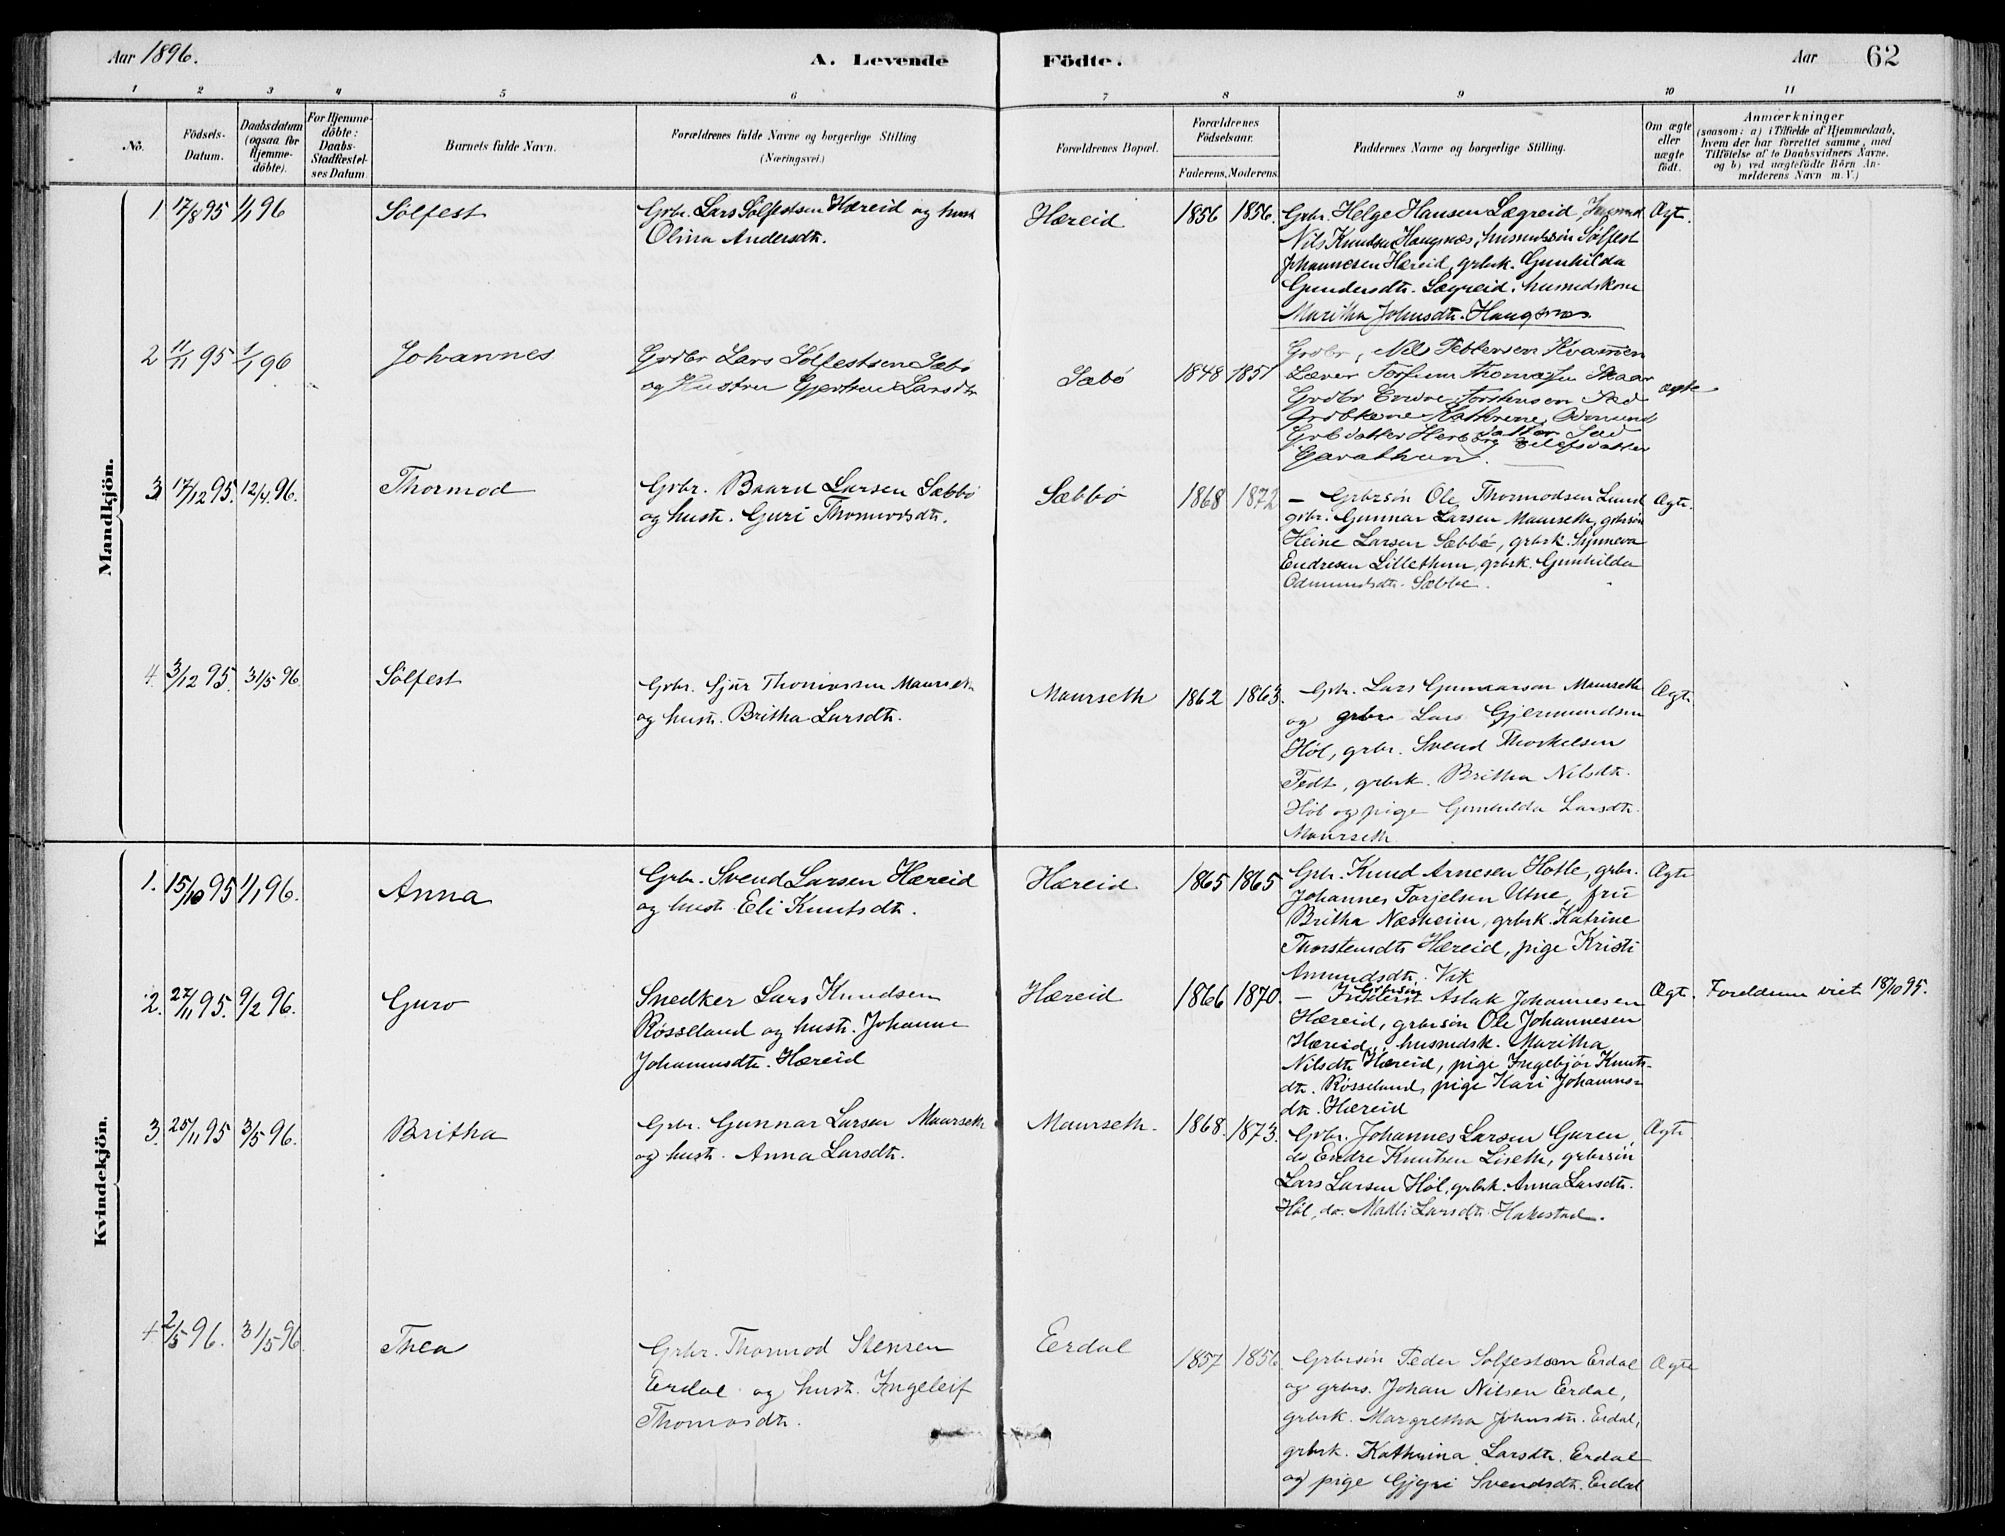 Aar 1896.
A. Levende Födte.
Aar 62
1 2 3 4 5 6 7 8 9 10 11
No.
Födsels-Datum.
Daabsdatum (ogsaa for Hjemme-döbte).
For Hjemme-döbte: Daabs-Stadfæstel-ses Datum
Barnets fulde Navn.
Forældrenes fulde Navne og borgerlige Stilling (Næringsvei.)
Forældrenes Bopæl.
Forældrenes Födselsaar.
Faderens. Moderens.
Faddernes Navne og borgerlige Stilling.
Om ægte eller uægte födt.
Anmærkninger
(saasom: a) i Tilfælde af Hjemmedaab, hvem der har forrettet samme, med Tilföielse af to Daabsvidners Navne, og b) ved uægtefödte Börn An-melderens Navn m. V.)
Mandkjön.
1 17/8 95 1/1 96 Sølfest
Grbr. Lars Sølfestsen Hæreid og hust
Olina Andersdtr.
Hæreid 1856 1856.
Grbr. Helge Hansen Lægreid,
Nils Knudsen Haugnæs, husmdssøn Sølfest
Johannesen Hæreid, grbrk. Gunhilda
Gundersdtr. Lægreid, husmdskone
Maritha Johnsdtr. Haugsnæs.
Ægt.
2 11/11 95 1/1 96 Johannes
Grdbr Lars Sølfestsen Sæbø
og Hustru Gjertrue Larsdtr
Sæbø 1848 1851
Grdbr, Nils Pettersen Kvammen
Lærer Torfinn Thomassen Skaar
Grdbr Endre Torstensen Sæd
Grdbkone Kathrine Odmunds
datter Sæd
Grb datter Herborg Eilefsdatter
Garathun.
ægte
3 17/12 95. 12/4 96. Thormod
Grbr. Baard Larsen Sæbbø
og hustr. Guri Thormodsdtr.
Sæbbø 1868 1872
— Grbrsøn Ole Thormodsen Lund
grbr. Gunnar Larsen Maurseth, grbrsøn
Heine Larsen Sæbbø, grbrk. Synneva
Endresen Lillethun, grbrk. Gunhilda
Odmundsdtr. Sæbbø.
Ægt.
4. 3/12 95. 31/5 96 Sølfest
Grbr. Sjur Thomassen Maurseth
og hust. Britha Larsdtr.
Maurseth 1862 1863.
— Grbr. Lars Gunnarson Maurseth
og grbr Lars Gjermundsen
Høl, grbr. Svend Thorkelsen
Fedt, grbrk. Britha Nilsdtr.
Høl og pige Gunhilda Larsdtr.
Maurseth
Ægt.
Kvindekjön.
1. 15/10 95 1/1 96. Anna
Grbr. Svend Larsen Hæreid
og hust. Eli Knutsdtr.
Hæreid 1865 1865
Grbr. Knud Arnesen Hotle, grbr.
Johannes Torjelsen Utne, fru
Britha Næsheim, grbrk. Katrine
Thorstensdtr Hæreid, pige Kristi
Amundsdtr. Vik
Ægt
2. 27/11 95. 9/2 96. Guro
Snedker Lars Knudsen
Røsseland og hustr. Johanne
Johannesdtr. Hæreid
Hæreid 1866 1870.
— Grbrsøn Aslak Johannesen
Hæreid, grbrsøn Ole Johannesen
Hæreid, husmdsk. Maritha
Nilsdtr Hæreid, pige Ingebjør Knuts-
dtr. Røsseland, pige Kari Johannes-
dtr. Hæreid
Ægt. Foreldrene viet 18/10 95.
3. 25/11 95 3/5 96. Britha
Grbr. Gunnar Larsen Maurseth
og hust. Anna Larsdtr.
Maurseth. 1868. 1873.
Grbr. Johannes Larsen Garen,
do Endre Knutsen Liseth, grbrsøn
Lars Larsen Høl, grbrk. Anna Larsdtr.
Høl, do. Madli Larsdtr. Hakestad.
Ægt
4 2/5 96. 31/5 96 Thea
Grbr. Thormod Stensen
Eerdal og hust. Ingeleif
Thomasdtr.
Eerdal 1857 1856
Grbrsøn Peder Sølfestsen Erdal
og grbrs. Johan Nilsen Erdal,
grbrk. Margretha Johnsdtr. Erdal,
grbrk. Katharina Larsdtr. Erdal
og pige Gjyri Svendsdtr. Erdal
Ægte